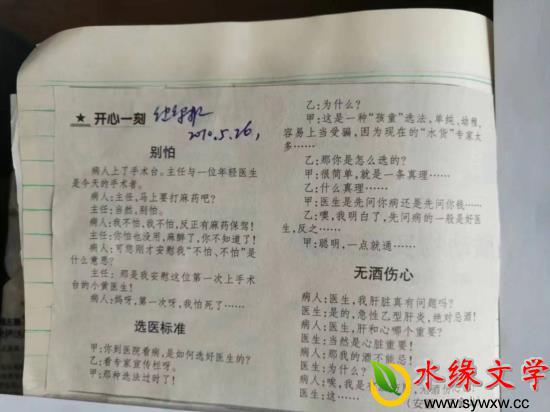 ★ 开心一刻
2010.5.26,
别怕
病人上了手术台。主任与一位年轻医生
是今天的手术者。
病人:主任,马上要打麻药吧?
主任:当然,别怕。
病人:我不怕,我不怕,反正有麻药保驾!
主任:你怕也没用,麻醉了,你不知道了!
病人:可您刚才安慰我“不怕、不怕”是
什么意思?
主任:那是我安慰这位第一次上手术
台的小黄医生!
病人:妈呀,第一次呀,我怕死了……
选医标准
甲:你到医院看病,是如何选好医生的?
乙:看专家宣传栏呀。
甲:那种选法过时了!
乙:为什么?
甲:这是一种“孩童”选法,单纯、幼稚,
容易上当受骗,因为现在的“水货”专家太
多……
乙:那你是怎么选的?
甲:很简单,就是一条真理……
乙:什么真理……
甲:医生是先问你病还是先问你钱……
乙:噢,我明白了,先问病的一般是好医
生,反之……
甲:聪明,一点就通……
无酒伤心
病人:医生,我肝脏真有问题吗?
医生:是的,急性乙型肝炎,绝对忌酒!
病人:医生,肝和心哪个重要?
医生:当然是心脏重要!
病人:那我的酒不能忌!
医生:为什么?
病人:唉,我是
无酒伤心
医生:这……
(安
水缘文学
www.sywxw.cc